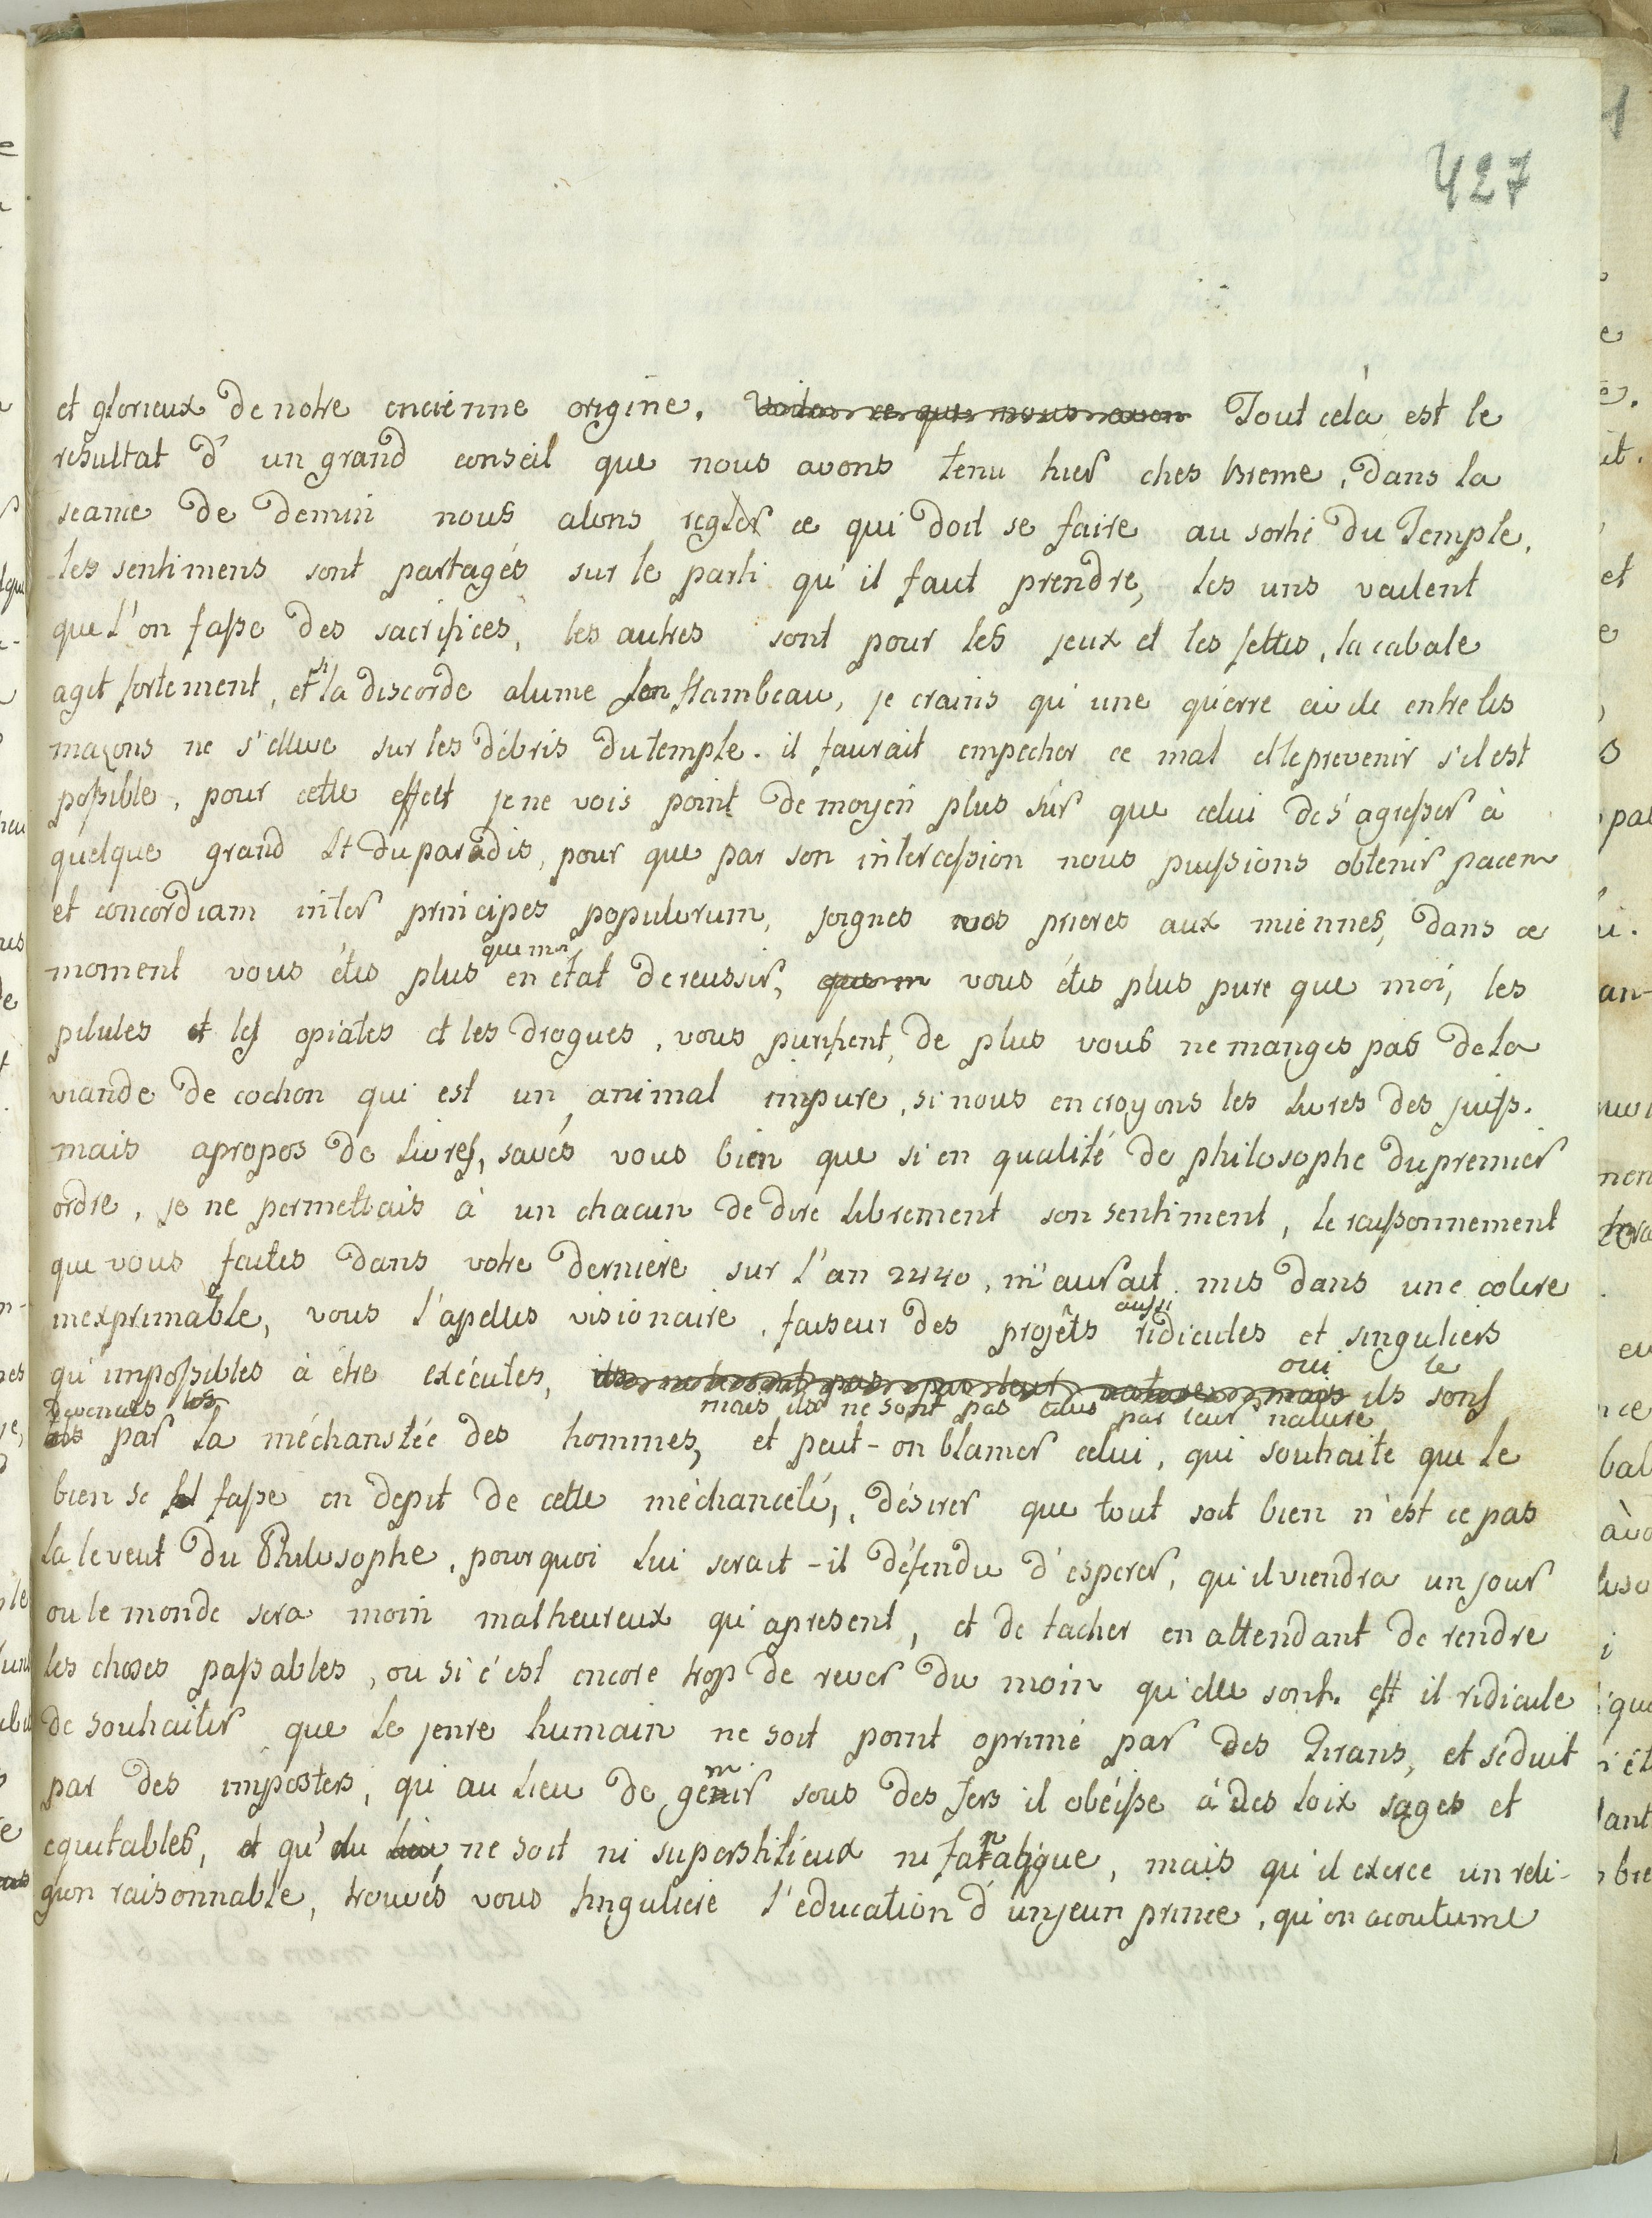 427
et glorieux de notre encienne origine. voilas ce que nous avon Tout céla est le
resultat d'un grand conseil que nous avons tenu hier ches Breme, dans la
seance de demin nous alons regler ce qui doit se faire au sorti du Temple,
les sentimens sont partagés sur le parti qu'il faut prendre, les uns veulent
que l'on fasse des sacrifices, les autres sont pour les jeux et les fettes, la cabale
agit fortement, et si la discorde alume son flambeau, je crains qu'une guerre civile entre les
maçons ne s'elleve sur les débris du temple. il faurait empecher ce mal et le prevenir s'il est
possible, pour cette effect je ne vois point de moyen plus sûr que celui de s'agresser à
quelque grand St du paradis, pour que par son intercession nous puissions obtenir pacem
et concordiam inter principes populorum, joignes vos prieres aux miennes, dans ce
moment vous étes plus que moi en état de reussir, que m vous étes plus pure que moi, les
pilules et les opiates et les drogues, vous purifient, de plus vous ne manges pas de la
viande de cochon qui est un animal impure, si nous en croyons les livres des juifs.
mais apropos de livres, savés vous bien que si en qualité de philosophe du premier
ordre, je ne permettais à un chacun de dire librement son sentiment, le raissonnement
que vous faites dans votre derniere sur l'an 2440, m'aurait mis dans une colere
inexprimable, vous l'apelles visionaire, faiseur des projêts aussi ridicules et singuliers
qu'impossibles à étre exécutes, mais ils ne sont pas tels par leur nature oui ils le sont
devenues tels par la méchanstée des hommes, et peut-on blamer celui, qui souhaite que le
bien se fasse en depit de cette méchanceté, désirer que tout soit bien n'est ce pas
la le veut du Philosophe, pourquoi lui serait-il défendu d'esperer, qu'il viendra un jour
ou le monde sera moin malheureux qu'apresent, et de tacher en attendant de rendre
les choses passables, ou si c'est encore trop de rever du moin qu'elle sont. est il ridicule
de souhaiter que le jenre humain ne soit point oprimé par des Tirans, et séduit
par des imposters, qu'au lieu de gémir sous des fers il obéisse à des loix sages et
equitables, et qu'il ne soit ni superstitieux ni fanatique, mais qu'il exerce un reli-
gion raisonnable, trouvés vous singuliere l'education d'un jeun prince, qu'on acoutume